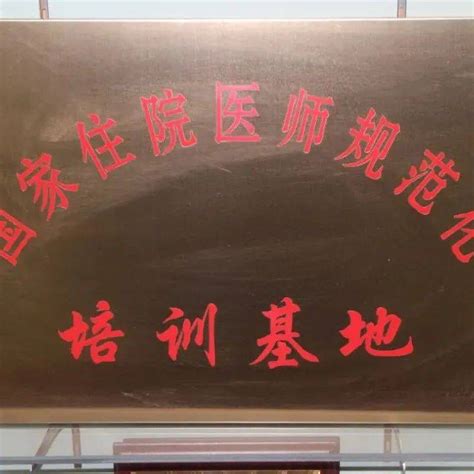 国家住院医师规范化
培训基地